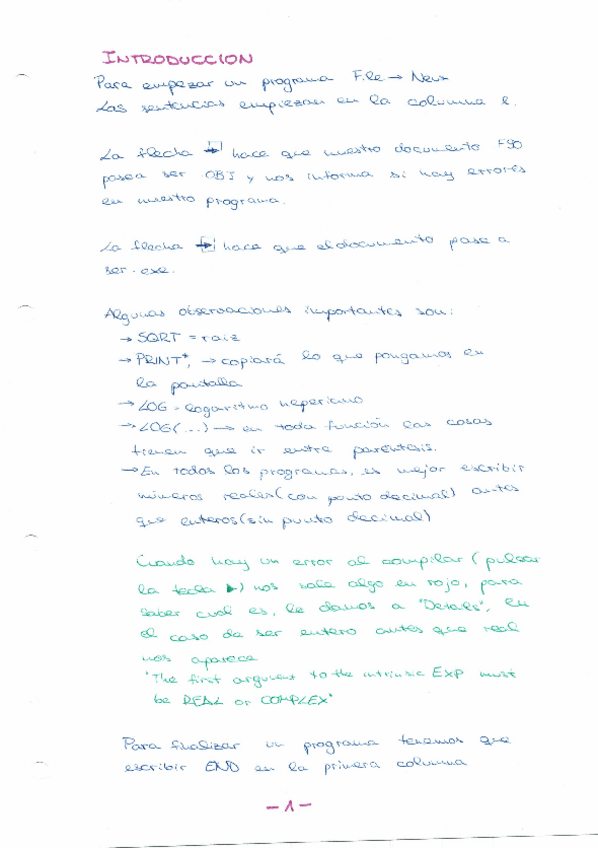 INTRODUCCION
Para empezar un programa File → New
Las sentencias empiezan en la columna
La flecha hace que nuestro documento F90
pasea ser OBJ y nos informa si hay errores
en nuestro programa.
La flecha hace que el documento pase a
ser .exe.
Algunas observaciones importantes son:
→ SQRT = raiz
→ PRINT*, → copiará lo que pongamos en
la pantalla
→ LOG = logaritmo neperiano
→ LOG(...) → en toda función las cosas
tienen que ir entre paréntesis.
→ En todos los programas, es mejor escribir
números reales (con punto decimal) antes
que enteros (sin punto decimal)
Cuando hay un error al compilar (pulsar
la tecla ▶) nos sale algo en rojo, para
saber cual es, le damos a "Details". En
el caso de ser entero antes que real
nos aparece
"The first argument to the intrinsic EXP must
be REAL or COMPLEX"
Para finalizar un programa tenemos que
escribir END en la primera columna
-1-